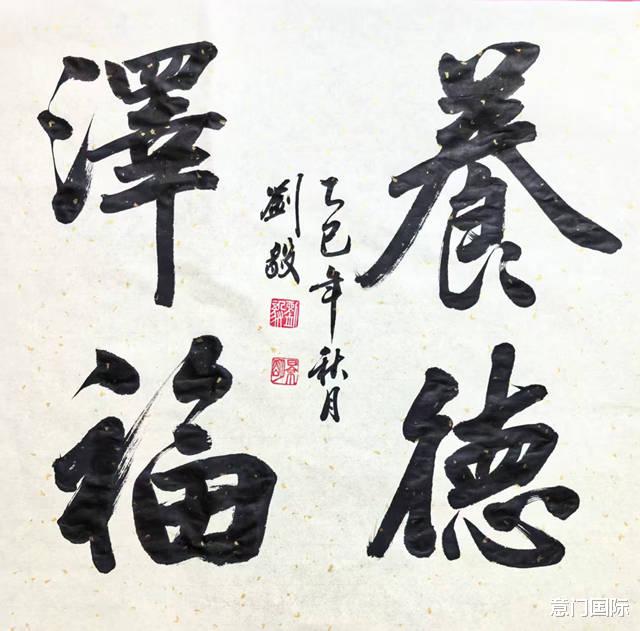 養德
澤福
乙巳年秋月
劉
意门国际